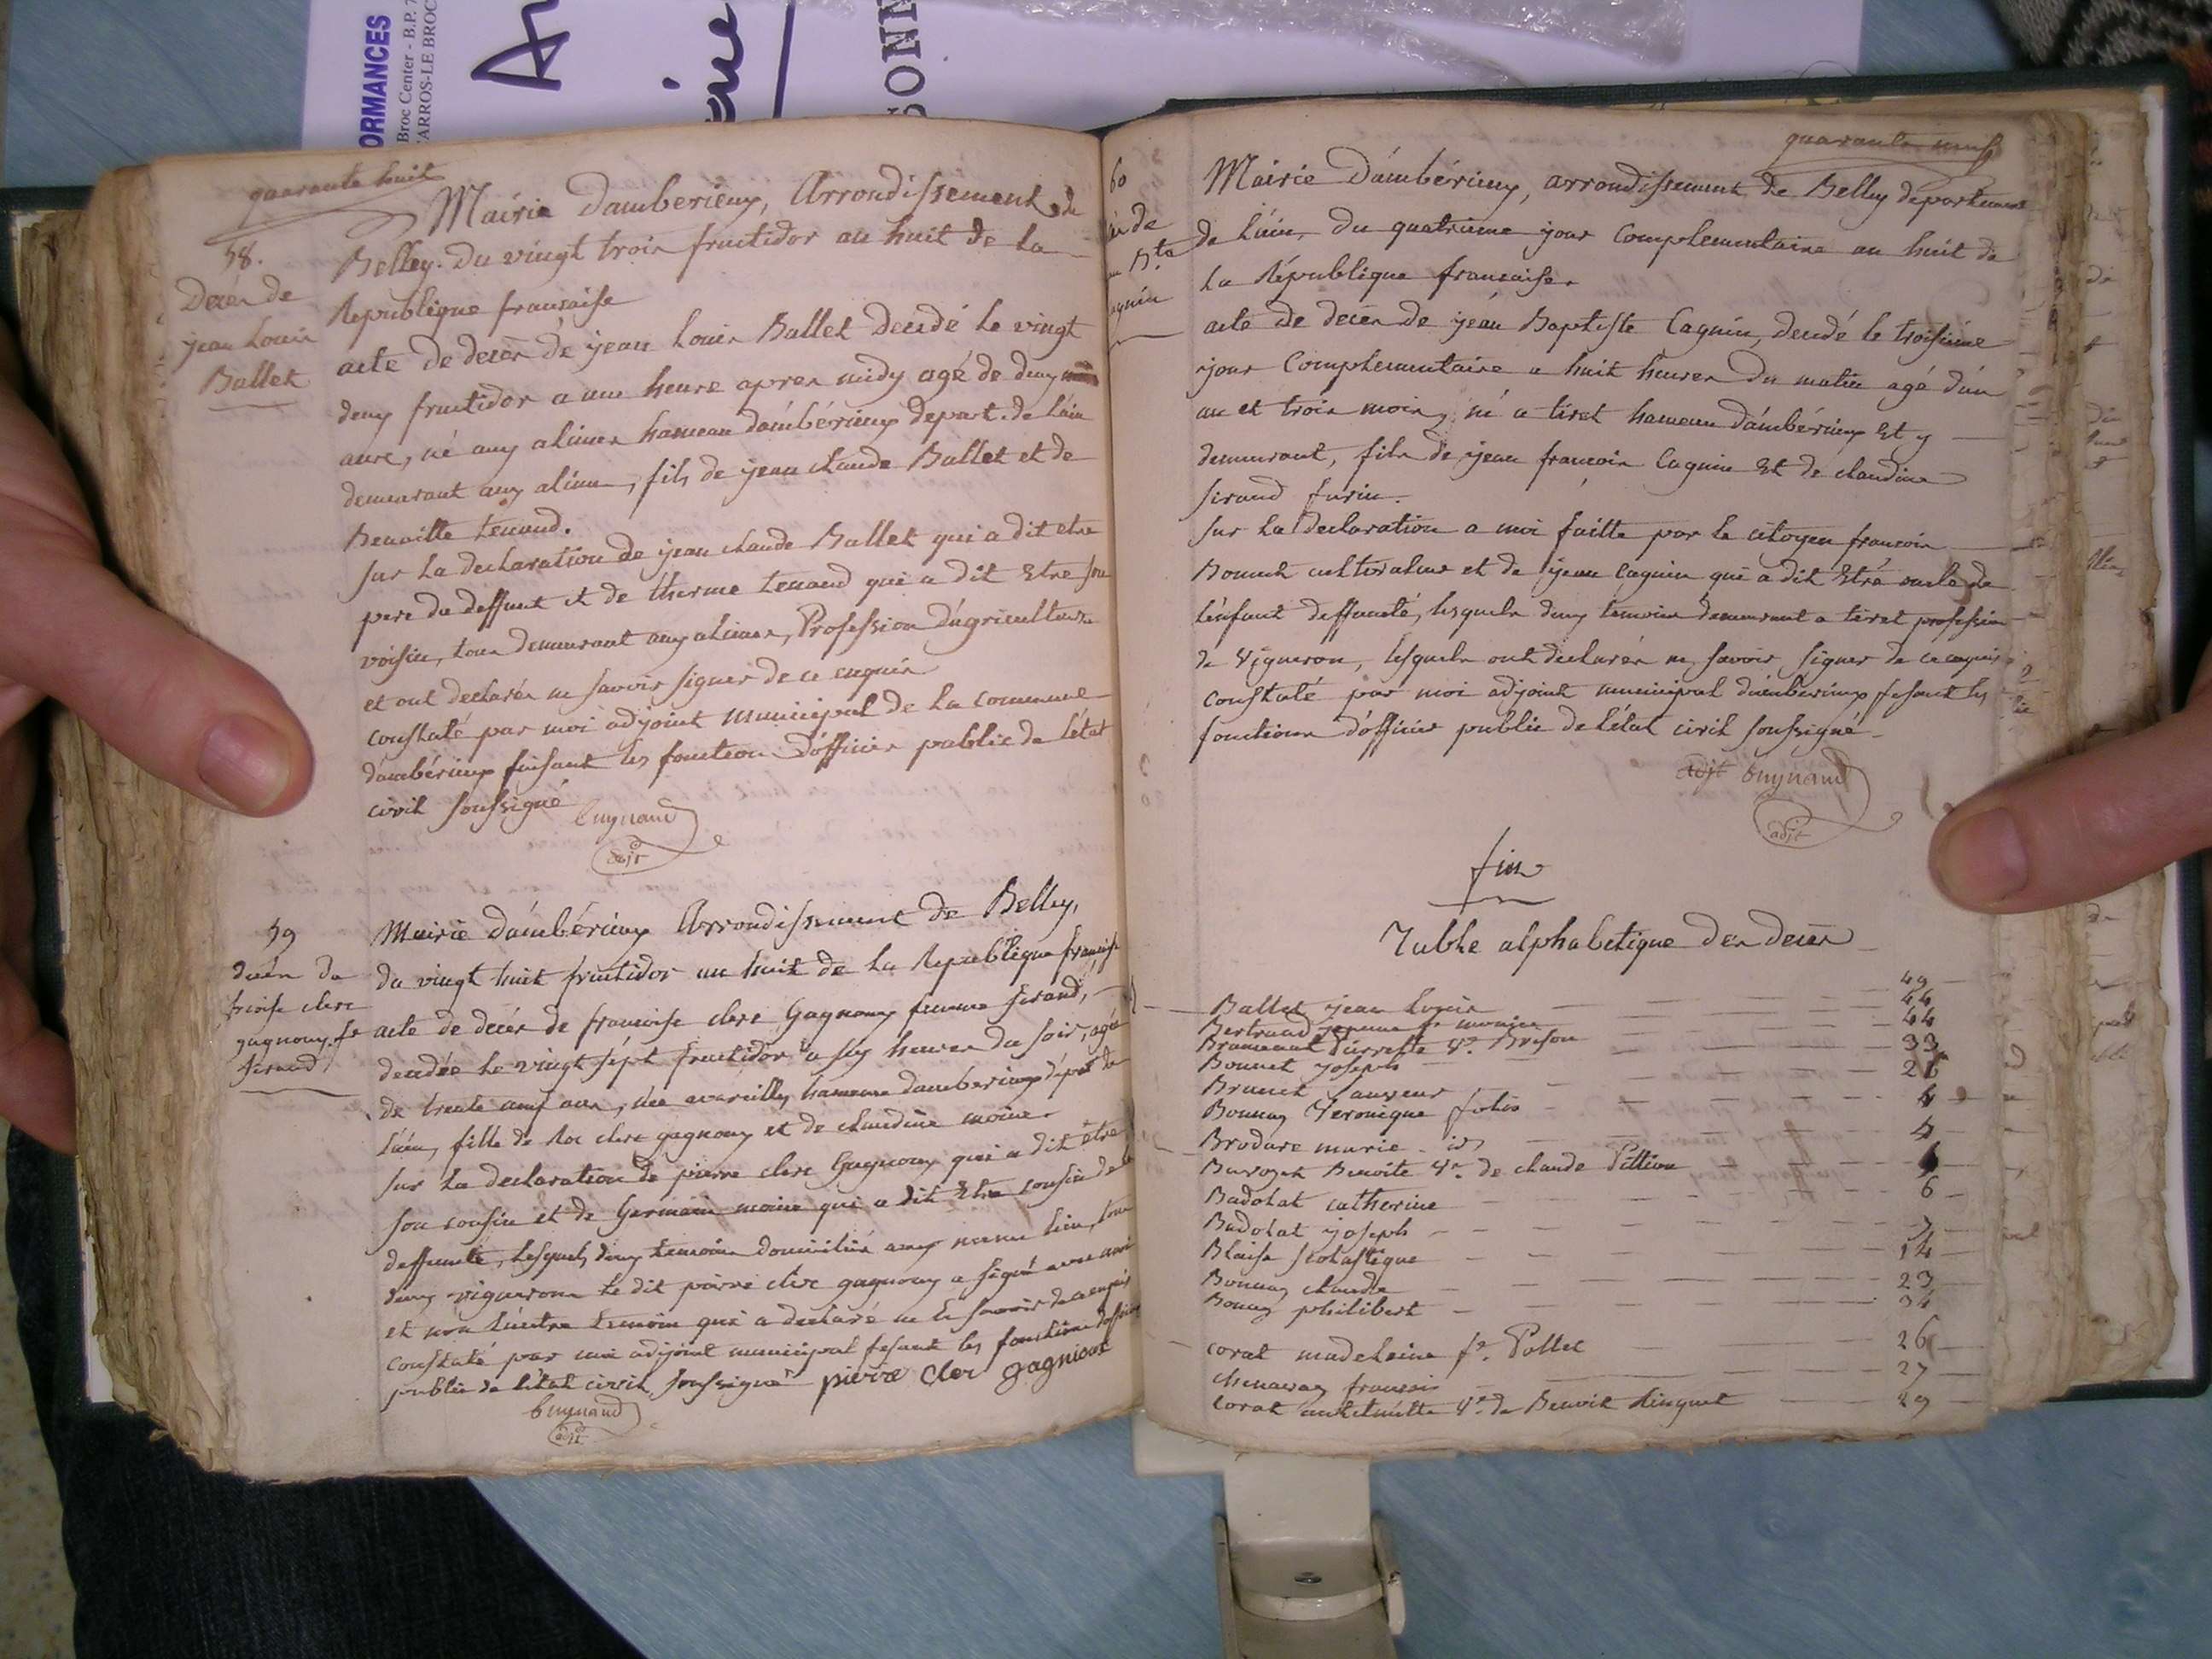 ORMANCES
Broc Center - B.P. 7
CARROS-LE BROC
quarante huit
58.
Decès de
jean Louis
Ballet
Mairie dambérieux, Arrondissement de
Belley. Du vingt trois fructidor an huit de la
Republique francaise
acte de decès de jean Louis Ballet decedé le vingt
deux fructidor a une heure apres midy agé de deux
ans, né aux alimes hameau dámbérieux depart. de láin
demeurant aux alimes, fils de jean claude Ballet et de
Benoitte tenand.
sur la declaration de jean claude Ballet qui a dit etre
pere du deffunt et de therme tenand qui a dit Etre son
voisin, tous demeurant aux alimes, Profession dágriculteurs
et ont declarés ne savoir signer de ce enquis
constaté par moi adjoint municipal de la commune
dambérieux faisant les fonction dófficier public de létat
civil soussigné
buynand
adjt
59
decès de
fcoise clerc
gagnoux fe
sirand
Mairie dámbérieux Arrondissement de Belley,
du vingt huit fructidor an huit de la Republique francaise
acte de decès de francoise clerc Gagnoux femme sirand,
decedée le vingt sépt fructidor a six heures du soir, agée
de trente neuf ans, née a vareilles hameau dambérieux dépat de
láin, fille de Roc clerc gagnoux et de claudine moine.
sur la declaration de pierre clerc Gagnoux qui a dit être
son cousin et de Germain moine qui a dit Etre cousin de la
deffunte, lesquels deux temoins domiciliés aux meme lieu, tous
deux vignerons le dit pierre clerc gagnoux a signé avec moi
et non láutre temoin qui a declaré ne le savoir de ce enquis
constaté par moi adjoint municipal fesant les fonctions dofficier
public de létat civil soussigné pierre cler gagnieux
buynand
adjt
quarante neuf
60
de
Bte
agnin
Mairie Dámbérieux, arrondissement de Belley departement
de láin, du quatrieme jour Complementaire an huit de
la République francaise.
acte de decès de jean Baptiste Cagnin, decedé le troisiéme
jour Complementaire a huit heures du matin agé dún
an et trois mois, né a tiret hameau dámbérieux Et y
demeurant, fils de jean francois Cagnin Et de claudine
sirand furin.
sur la declaration a moi faitte par le citoyen francois
Bonnet cultivateur et de jean Cagnin qui a dit Etré oncle de
lénfant deffuncté, lesquels deux temoins demeurant a tiret profession
de Vigneron, lesquels ont declarés ne savoir signer de ce enquis
constaté par moi adjoint municipal dámberieux fesant les
fonctions dófficier public de létat civil soussigné
adjt buynand
adjt
fin
Table alphabetique des decès
Ballet jean Louis 49
Bertrand femme moine 44
Brunet Pierrette Ve. Brison 44
Bonnet joseph 33
Brunet sauveur 26
Bonnay Veronique folio 4
Brodare marie id 4
Benoite Ve. de claude Pittion
Badolat catherine 6
Badolat joseph 7
Blaise scolastique 14
Bonnay claude 23
Bonnay philibert 34
corat madeleine fe. Pollet 26
chenavay francois 27
corat anthelmette Ve. de Benoit Linguet 29